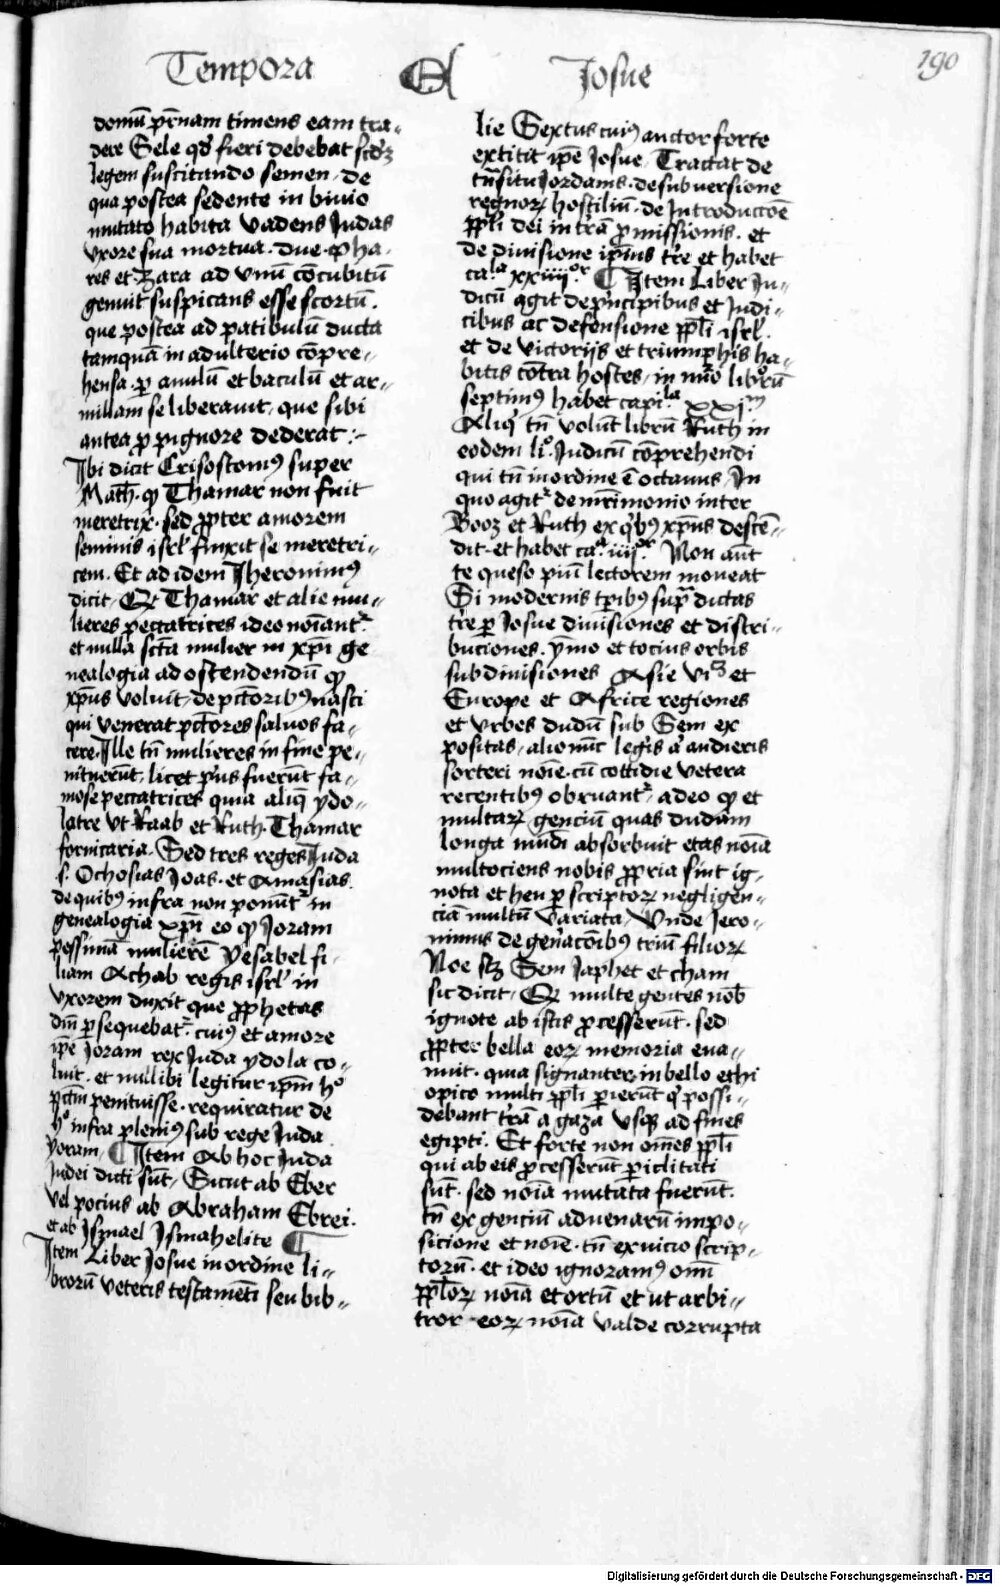 Tempora A Josue 190
domū pr̄nam timens eam tra„
dere Sele qd' fieri debebat scd'z
legem suscitando semen, de
qua postea sedente in biuio
mutato habitu vadens Judas
vxore sua mortua. due. pha„
res et Zara ad vnū cōcubitū
genuit suspicans esse scortū.
que postea ad patibulū ducta
tamquā in adulterio cōpre„
hensa. ꝑ anulū et baculū et ar„
millam se liberauit, que sibi
antea ꝓ pignore dederat :~
Ibi dicit Crisostomꝰ super
Math. ꝙ Thamar non fuit
meretrix. sed ꝓpter amorem
seminis isrl' finxit se meretri„
cem. Et ad idem Jheronimꝰ
dicit, Qꝫ Thamar et alie mu„
lieres peccatrices ideo noīant᷑
et nulla sctā mulier in xp̄i ge
nealogia ad ostendendū ꝙ
xp̄us voluit, de pctōribꝰ nasci
qui venerat pctōres saluos fa„
cere. Ille tn̄ mulieres in fine pe„
nituerūt, licet pꝰus fuerūt fa„
mose peccatrices quia aliq̄ ydo„
latre vt Raab et Ruth. Thamar
fornicaria. Sed tres reges Juda
.s. Ochosias Joas. et Amasias.
de quibꝰ infra non ponūt᷑ in
genealogia xp̄i eo ꝙ Joram
pessimā mulierē Yesabel fi„
liam Achab regis isrl' in
vxorem duxit que ꝓphetas
dn̄i ꝑsequebat᷑. cuiꝰ et amore
ip̄e Joram rex Juda ydola co„
luit. et nullibi legitur ip̄m h°
pctm̄ penituisse. requiratur de
h° infra pleniꝰ sub rege Juda
yoram. ¶ Item Ab hoc Juda
Judei dicti sūt, Sicut ab Eber
vel pocius ab Abraham Ebrei.
et ab Ismael Ismahelite ¶
Item Liber Josue in ordine li„
brorū veteris testamēti seu bib„
lie Sextus cuiꝰ auctor forte
extitit ip̄e Josue, Tractat de
tn̄situ Jordanis. de subuersione
regnoꝝ hostiliū. de Introductōe
ppl'i dei in tr̄ā ꝓmissionis. et
de diuisione ip̄ius tr̄e et habet
ca.la xxiiijor ¶ Item Liber Ju„
dicū agit de pⁱncipibus et Judi„
cibus ac defensione ppl'i isrl'.
et de victorijs et triumphis ha„
bitis cōtra hostes, in nūo librorū
septimꝰ habet capi.la xxjm
Aliqⁱ tn̄ volūt librū Ruth in
eodem li°. Judicū cōprehendi
qui tn̄ in ordine ē octauus, In
quo agit᷑ de mr̄imonio inter
Booz et Ruth ex qⁱbꝰ xp̄us descē„
dit. et habet ca.la iiijor Non aūt
te queso piū lectorem moueat
Si modernis tp̄ibꝰ supra dictas
tr̄e ꝑ Josue diuisiones et distri„
buciones. ymo et tocius orbis
subdiuisiones Asie vꝫ et
Europe et Africe regiones
et vrbes dudū sub Sem ex
positas, alio nūc legis aut audieris
sorteri noīe. cū cottidie vetera
recentibꝰ obruant᷑, adeo ꝙ et
multaꝝ genciū quas dudum
longa mūdi absorbuit etas noīa
multociens nobis ꝓpria sint ig„
nota et heu ꝑ scriptoꝝ negligen„
ciā multū variata, Vnde Jero„
nimus de gen̄acōibꝰ triū filioꝝ
Noe scꝫ Sem Japhet et cham
sic dicit, Qꝫ multe gentes nob̄
ignote ab istis ꝓcesserūt. sed
ꝓpter bella eoꝝ memoria eua„
nuit. quia signanter in bello ethi
opico multi ppl'i perierūt qⁱ possi„
debant tr̄ā a gaza vsqꝫ ad fines
egipti. Et forte non om̄es ppl'i
qui ab eis ꝓcesserūt ꝑiclitati
sūt. sed noīa mutata fuerūt.
tū ex genciū aduenarū impo„
sicione et noīe. tū ex vicio scrip„
torū. et ideo ignoramꝰ om̄
ppl'oꝝ noīa et ortū et ut arbi„
tror. eoꝝ noīa valde corrupta
Digitalisierung gefördert durch die Deutsche Forschungsgemeinschaft - DFG